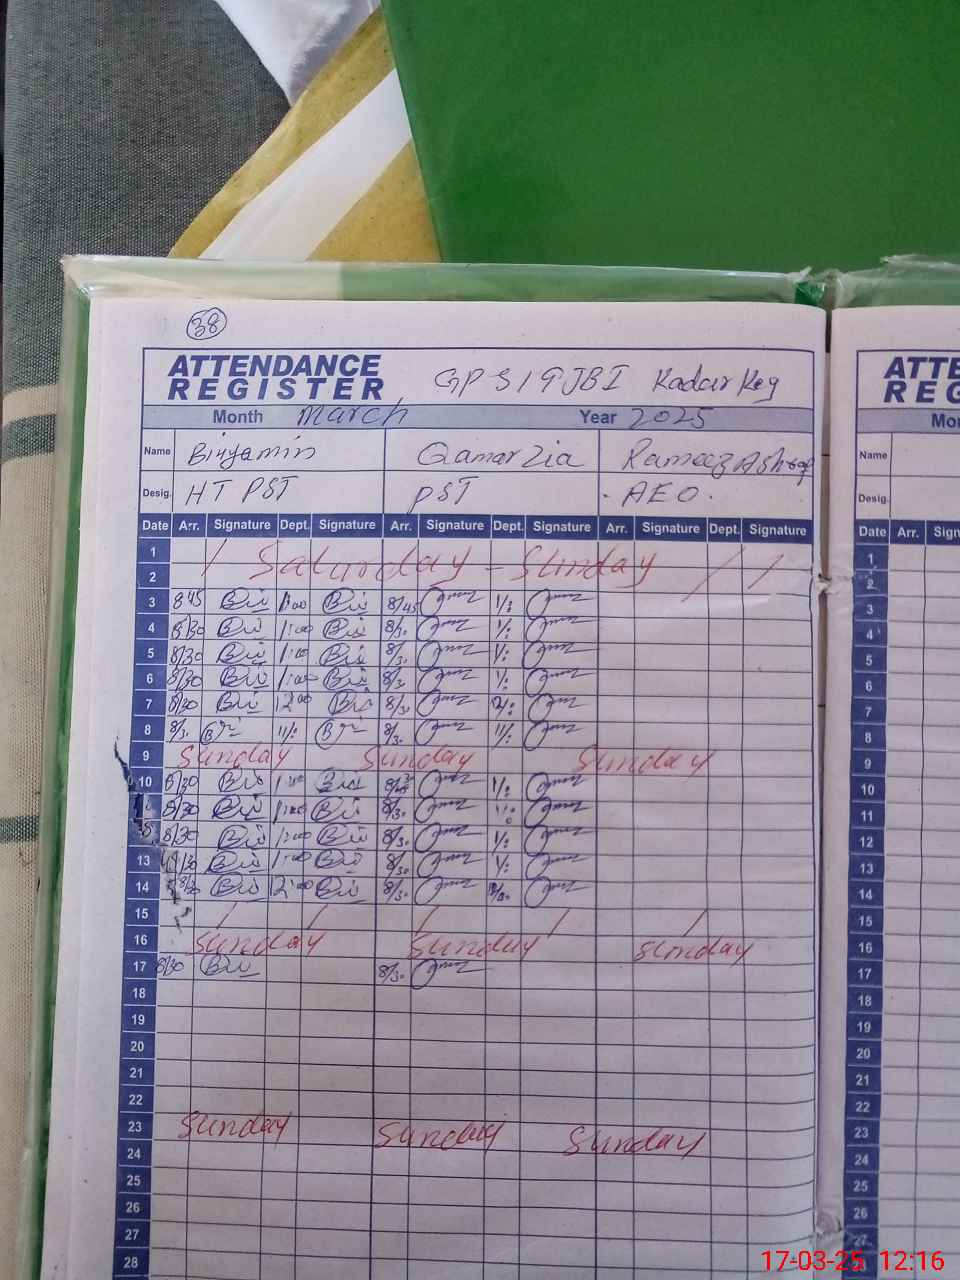 38
ATTENDANCE REGISTER GPS 19JBI Kadar Keg
Month March Year 2025
Name Binyamin Qamar Zia Rameez Ashraf
Desig. HT PST PST AEO.
Date Arr. Signature Dept. Signature Arr. Signature Dept. Signature Arr. Signature Dept. Signature
1 Saturday - Sunday
2
3 8/45 1:00 8/45 1/:
4 8/30 1:00 8/30 1/:
5 8/30 1:00 8/30 1/:
6 8/30 1:00 8/30 1/:
7 8/30 12:00 8/30 12/:
8 8/30 11/: 8/30 11/:
9 Sunday Sunday Sunday
10 8/30 1:00 1/:
8/30 1:00 8/30
8/30 1:00 8/30 1/:
13 1:00 8/30 1/:
14 12:00 8/30
15
16 Sunday Sunday Sunday
17 8/30 8/30
18
19
20
21
22
23 Sunday Sunday Sunday
24
25
26
27
28
Name
Desig.
Date Arr.
1
2
3
4
5
6
7
8
9
10
11
12
13
14
15
16
17
18
19
20
21
22
23
24
25
26
27
17-03-25 12:16